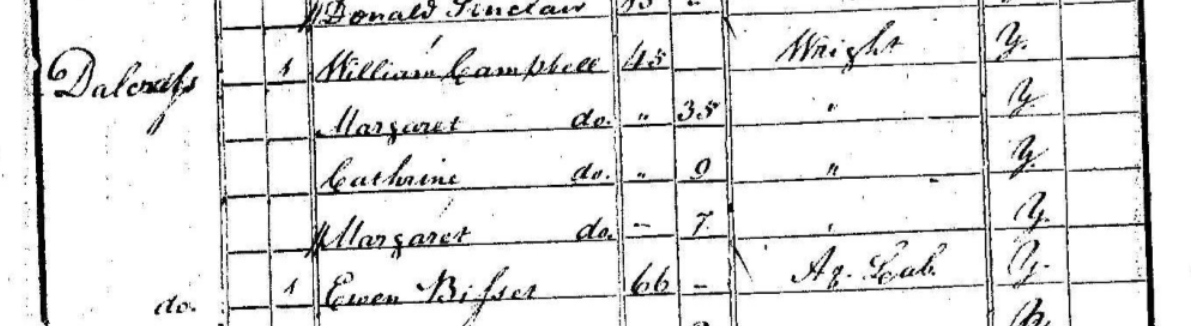 Donald Sinclair
Dalcrass 1 William Campbell 45 Wright Y.
Margaret do. " 35 " Y
Cathrine do. " 9 " Y.
Margaret do. - 7 " Y.
do. 1 Ewen Bisset 66 - Ag. Lab. Y.